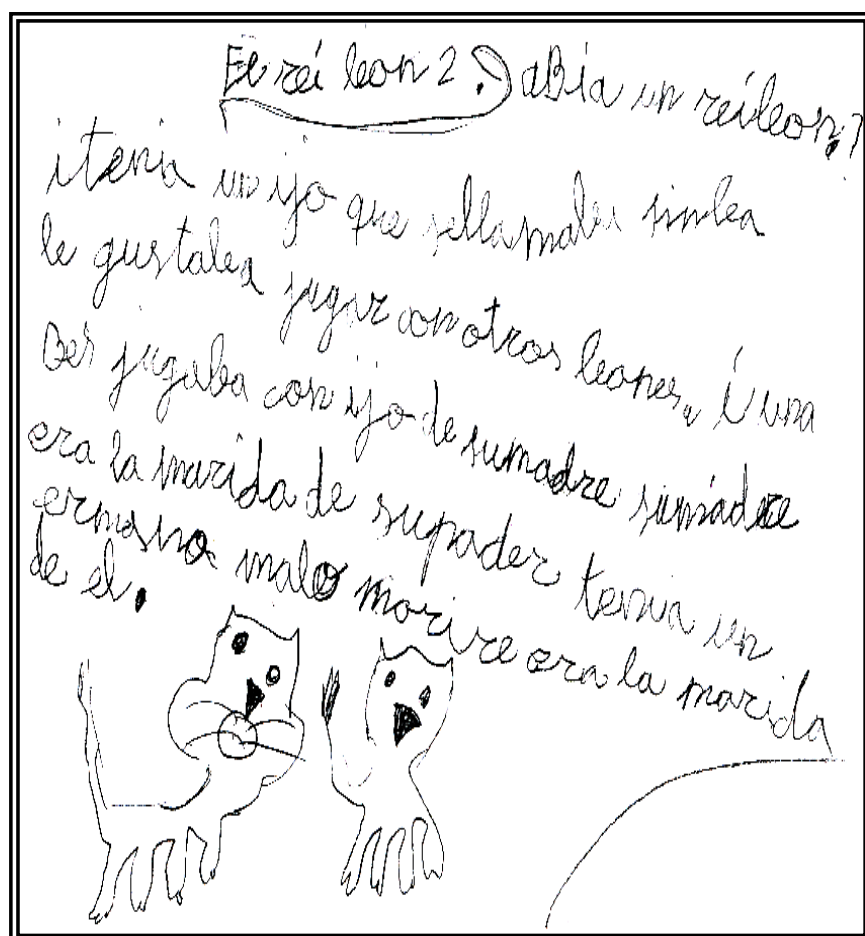 El rei leon 2. aBia un reileon.
i tenia un ijo que sellamaba simba
le gustaba jugar con otros leones. i una
Bes jugaba con ijo de sumadre sumadre
era la marida de supader tenia un
ermano malo morire era la marida
de el.